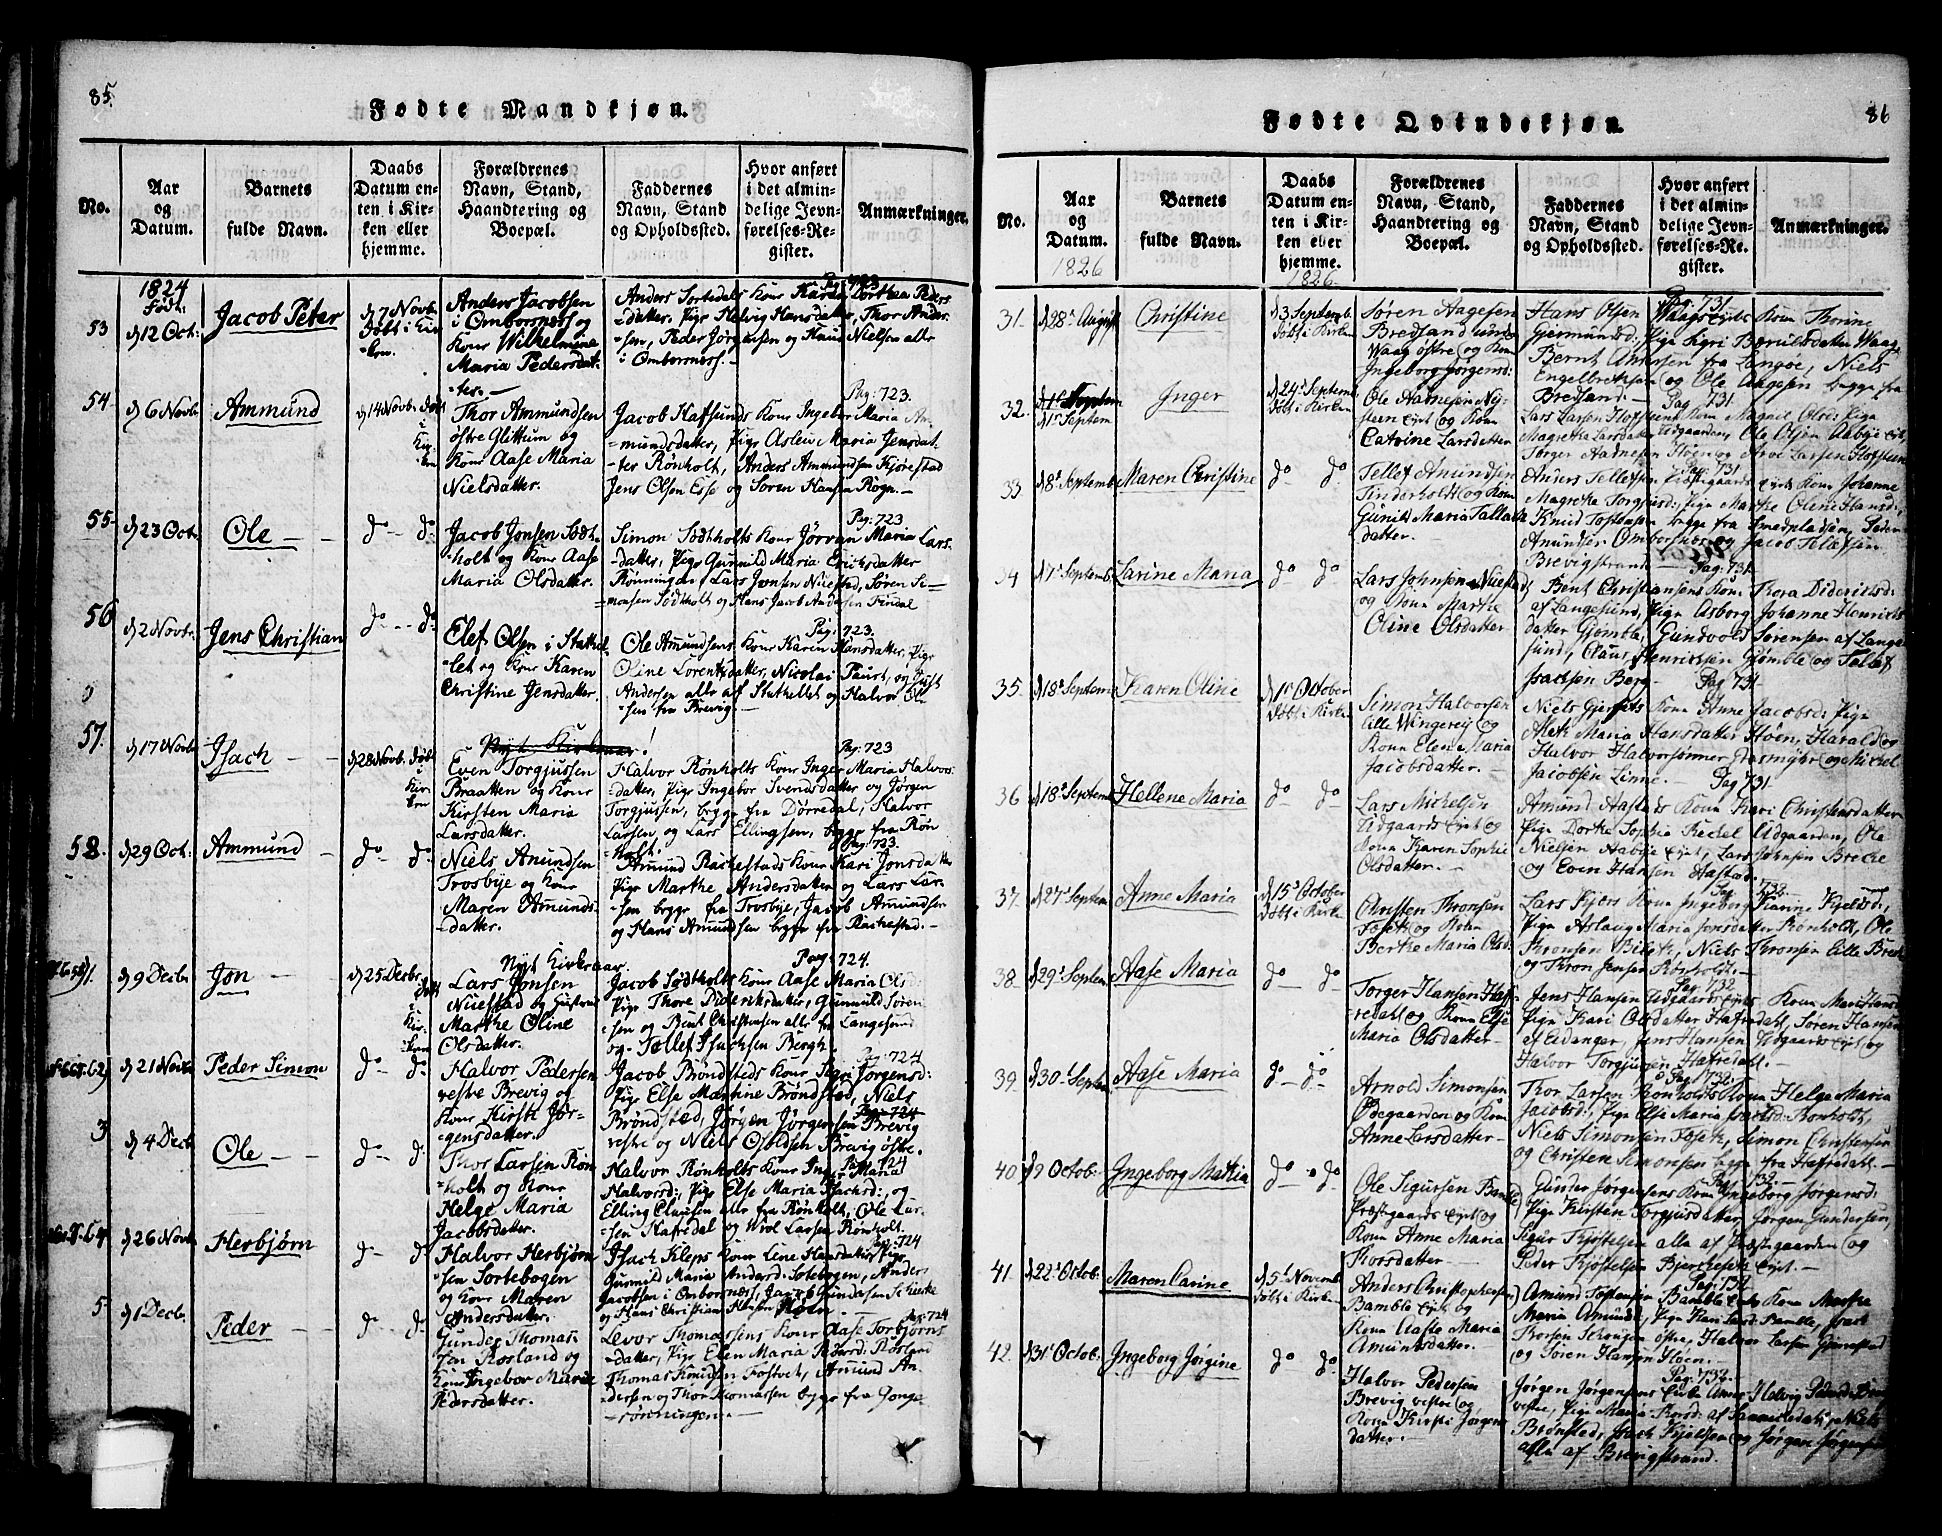 85.
Fødte Mandkjøn.
No.
Aar
og
Datum.
Barnets
fulde Navn.
Daabs
Datum en-
ten i Kir-
ken eller
hjemme.
Forældrenes
Navn, Stand,
Haandtering og
Boepæl.
Faddernes
Navn, Stand
og Opholdssted.
Hvor anført
i det almin-
delige Jevn-
førelses-Re-
gister.
Anmærkninger.
1824
Født.
53
d 12 Oct:
Jacob Peter
d 7 Novb.
døbt i Kir-
-ken.
Anders Jacobsen
i Ombornes og
Kone Wilhelmine
Maria Pedersdat-
-ter.
Pag. 723
Anders Sortedals Kone Karen Dorthea Peders
-datter, Pige Helvig Hansdatter, Thor Ander-
-sen, Peder Jørgensen og Knud Nielsen alle
i Ombornes.
54
d 6 Novb.
Ammund
d 14 Novb. døbt
i
Kir-
ken
Thor Ammundsen
østre Glittum og
Kone Aase Maria
Nielsdatter.
Pag: 723.
Jacob Hafsunds Kone Ingebor Maria Am-
-mundsdatter, Pige Aslau Maria Jensdat-
-ter Rønholt, Anders Ammundsen Kjørestad
Jens Olsen Esse og Søren Hansen Rogn.
55
d 23 Oct:
Ole
do do
Jacob Jonsen Sødt-
-holt og Kone Aase
Maria Olsdatter.
Pag: 723.
Simon Sødtholts Kone Jørran Maria Lars-
-datter, Pige Gunnild Maria Erichsdatter
Rønningen, Lars Jonsen Nuestad, Søren Si-
-monsen Sødtholt og Hans Jacob Andersen Findal
56
d 2 Novb.
Jens Christian
do do
Elef Olsen i Stathel-
-let og Kone Karen
Christine Jensdatter.
Pag: 723.
Ole Amundsens Kone Karen Hansdatter, Pige
Oline Lorentsdatter, Nicolai Faust, og Just
Andersen alle af Stathellet og Halvor Ol-
-sen fra Brevig.
57.
d 17 Novb.
Isach
d 28 Novb. døbt
i
Kir-
ken
Even Torgjussen
Braatten og Kone
Kirsten Maria
Larsdatter.
Pag: 723
Halvor Rønholts Kone Inger Maria Halvors-
-datter, Pige Ingebor Svendsdatter og Jørgen
Torgjussen, begge fra Dørredal, Halvor
Larsen og Lars Ellingsen, begge fra Røn-
-holt.
58.
d 29 Oct:
Ammund
do do
Niels Anundsen
Trosbye og Kone
Maren Amunds-
-datter.
Pag: 723.
Amund Rackestads Kone Kari Jonsdatter
Pige Marthe Andersdatter og Lars Lar-
-sen begge fra Trosbye, Jacob Amundsen
og Hans Amundsen begge fra Rackestad.
Nyt Kirkeaar.
d 9 Decbr.
Jon
d 25 Decbr.
døbt
i
Kir-
-ken
Lars Jonsen
Nuestad og Hustrue
Marthe Oline
Olsdatter.
Pag: 724.
Jacob Sødtholts Kone Aase Maria Olsd:
Pige Thore Diderichsdatter, Gunnuld Søren-
-sen og Bent Christensen alle fra Langesund
og Tollef Isachsen Bergh.
d 21 Novbr
Peder Simon
do do
Halvor Pedersen
vestre Brevig og
Kone Kirsti Jør-
-gensdatter.
Pag: 724
Jacob Brøndsteds Kone Sigri Jørgensd:
Pige Else Martine Brøndsted, Niels
Brøndsted, Jørgen Jørgensen Brevig
vestre og Niels Olsen Brevig østre.
3
d 4 Decb.
Ole
do d:
Thor Larsen Røn-
-holt og Kone
Helge Maria
Jacobsdatter.
Pag: 724
Halvor Rønholts Kone Inger Maria
Halvorsd:, Pige Else Maria Isachsd:, og
Elling Clausen alle fra Rønholt, Ole Lar-
-sen Hafredal og Wrol Larsen Rønholt.
d 26 Novb.
Herbjørn
do do
Halvor Herbjørn-
-sen Sortebogen
og Kone Maren
Andersdatter.
Pag: 724
Isach Kleps Kone Lene Hansdatter, Pige
Gunnild Maria Andersd: Sortebogen, Anders
Jacobsen i Ombornes, Jacob Gundersen Schiecke
og Hans Christian Hansen
5
d 1 Decbr.
Peder
do do
Gunder Thomas-
-sen Rosland og
Kone Ingebor Maria
Pedersdatter.
Pag: 724
Levor Thomassens Kone Aase Torbjørns
-datter, Pige Elen Maria Pedersd: Rosland
Thomas Knudsen Fostvet, Amund An-
-dersen og Thor Thomassen begge fra Jonge-
-rønningen.
86
Fødte Qvindekjøn.
No.
Aar
og
Datum.
1826
Barnets
fulde Navn.
Daabs
Datum en-
ten i Kir-
ken eller
hjemme.
1826.
Forældrenes
Navn, Stand,
Haandtering og
Boepæl.
Faddernes
Navn, Stand
og Opholdssted.
Hvor anført
i det almin-
delige Jevn-
førelses-Re-
gister.
Anmærkninger.
31.
d 28 August
Christine
d 3 Septemb.
døbt i Kirken
Søren Aagesen
Bredsand under
Waag østre og Kone
Ingeborg Jørgensd:
Pag: 731.
Hans Olsen Waags Eiets Kone Thorine
Gjermundsd: Pige Sigri Bærulsdatter Waag
Bernt Andersen fra Langøe, Niels
Engelbretsen og Ole Aagesen begge fra
Bredsand.
32.
d 1 Septem
Inger
d 24 Septemb
døbt i Kirken
Ole Aadnesen Ny-
steen Eiet og Kone
Catrine Larsdatter
Pag. 731.
Lars Larsen Hofsteens Kone Magnild Olsd: Pige
Magrethe Larsdatter Udgaarden, Ole Olsen Aabye Eiet,
Torger Aadnesen Høen og Aroe Larsen Hofsteen
33
d 8 Septemb
Maren Christine
do do
Tellef Amundsen
Tinderholdt og Kone
Gunild Maria Tallaks
datter.
Pag. 731
Anders Tellefsen Præstgaards Eiets Kone Johanne
Magrethe Torgjusd: Pige Marthe Olene Hansd:
Knud Tostensen begge fra Smedpladsen, Peder
Amundsen Ombornes og Jacob Tellefsen
Brevigstrand.
34
d 7 Septemb
Larine Maria
do do
Lars Johnsen Nuestad
og Kone Marthe
Oline Olsdatter
Pag. 731.
Bent Christiansens Kone Thora Dideriksd:
af Langesund, Pige Asborg Johanne Henriks-
datter Gjømle, Gundvold Sørensen af Lange-
sund, Claus Henriksen Gjømle og Tellef
Isachsen Berg
35.
d 18 Septem
Karen Oline
d 1 October
døbt i Kirken
Simon Halvorsen
Lille Wingereij og
Kone Elene Maria
Jacobsdatter.
Pag 731.
Niels Gjersets Kone Anne Jacobsd: Pige
Aleth Maria Hansdatter Høen, Harald og
Halvor Halvorsønner Grasmyhr og Michel
Jacobsen Linne.
36
d 18 Septem
Hellene Maria
do do
Lars Michelsen
Udgaards Eiet og
Kone Karen Sophie
Olsdatter.
Pag 731
Amund Aasteds Kone Kari Christensdatter
Pige Dorthe Sophie Michel Udgaarden, Ole
Nielsen Aabye Eiet, Lars Johnsen Breche
og Even Hansen Hastad.
37.
d 27 Septem
Anne Maria
d 15 October
døbt i Kirken
Christen Thronsen
Foset og Kone
Berthe Maria Olsd
Pag 732.
Lars Kjørs Kone Ingeborg Karine Kjeldsd:,
Pige Aslaug Maria Jonsdatter Rønhold, Ole
Thronsen Bilet, Niels Thronsen Lille Brech
og Thron Jensen Rønholdt.
38.
d 29 Septem
Aase Maria
do do
Torger Hansen Haf-
redahl og Kone Else
Maria Olsdatter.
Pag. 732
Jens Hansen Udgaards Eiets Kone Mari Hansd
Pige Kari Olsdatter Hafredahl, Søren Hansen
af Eidanger, Jens Hansen Udgaards Eiet og
Halvor Torgjusen Hafredal.
39.
d 30 Septem
Aase Maria
do do
Arnold Simonsen
Ødegaarden og Kone
Anne Larsdatter
Pag. 732.
Thor Larsen Rønholdts Kone Helge Maria
Jacobsd:, Pige Else Maria Isachsd: Rønholt,
Niels Simonsen Foset, Simon Christensen
og Christen Simonsen begge fra Hafredahl.
40.
d 9 Octob:
Ingeborg Mathia
do do
Ole Sigursen Bamle
Præstgaards Eiet og
Kone Anne Maria
Thorsdatter
Pag 732.
Gunder Jørgensens Kone Ingeborg Jørgensd:
Pige Kirsten Torgjusdatter, Jørgen Gundersen,
Sigur Kjøstelsen alla af Præstgaarden og
Peder Kjøstelsen Bjerkeset Eiet.
41.
d 22 Octob:
Maren Carine
d 5 Novemb
døbt i Kirken
Anders Christophersen
Bamble Eiet og
Kone Aase Maria
Amundsdatter.
Pag: 732.
Amund Tostensen Bamble Eiets Kone Marthe
Maria Amundsd:, Pige Kari Larsd: Bamble, Isach
østre, Halvor Larsen
og Søren Hansen Høen.
42.
d 31 Octob:
Ingeborg Jørgine
do do
Halvor Pedersen
Brevig vestre og
Kone Kirsti Jørgens
datter.
Pag: 732.
Jørgen Jørgensens Anne Helvig
vestre, Pige Maria
Brønsted, Isach Kjølsen og Jørgen Jørgensen
alla af Brevigstrand.